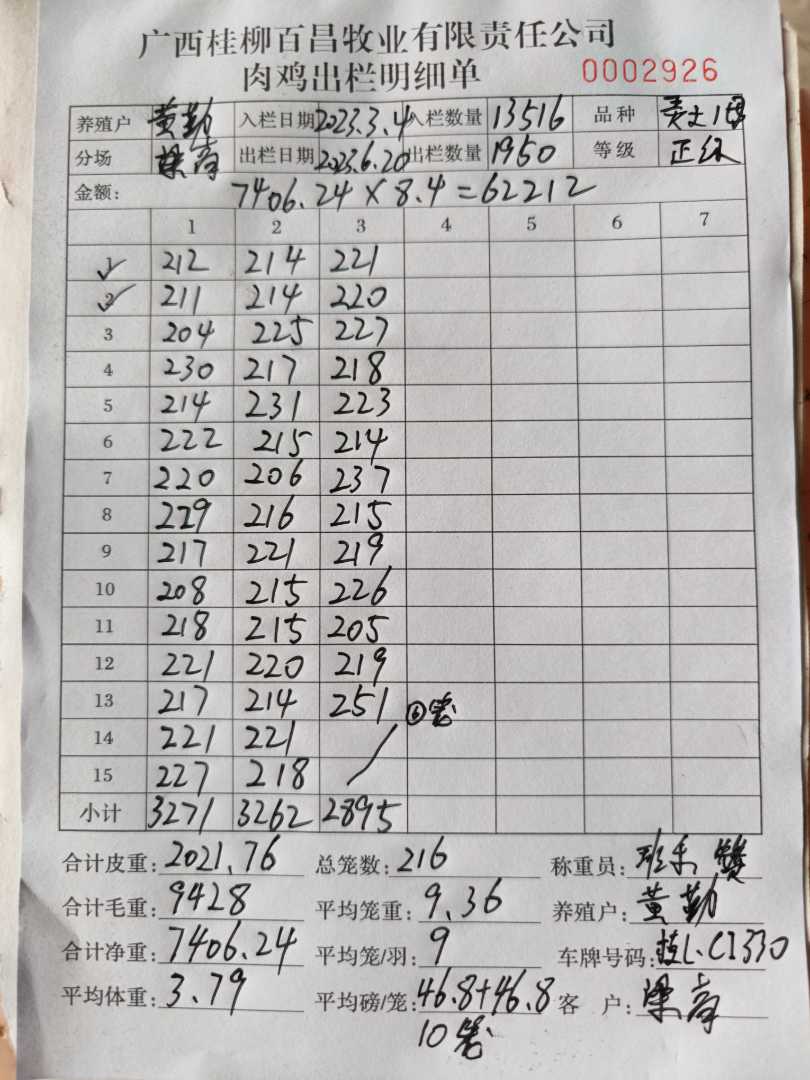 广西桂柳百昌牧业有限责任公司
肉鸡出栏明细单 0002926
养殖户 黄勤 入栏日期 2023.3.4 入栏数量 13516 品种
分场 梁高 出栏日期 2023.6.20 出栏数量 1950 等级 正红
金额: 7406.24×8.4=62212
1 2 3 4 5 6 7
1 212 214 221
2 211 214 220
3 204 225 227
4 230 217 218
5 214 231 223
6 222 215 214
7 220 206 237
8 229 216 215
9 217 221 219
10 208 215 226
11 218 215 205
12 221 220 219
13 217 214 251 ⑥笼
14 221 221
15 227 218
小计 3271 3262 2895
合计皮重: 2021.76 总笼数: 216 称重员:
合计毛重: 9428 平均笼重: 9.36 养殖户: 黄勤
合计净重: 7406.24 平均笼/羽: 9 车牌号码:
平均体重: 3.79 平均磅/笼: 46.8+46.8 客 户: 梁高
10笼